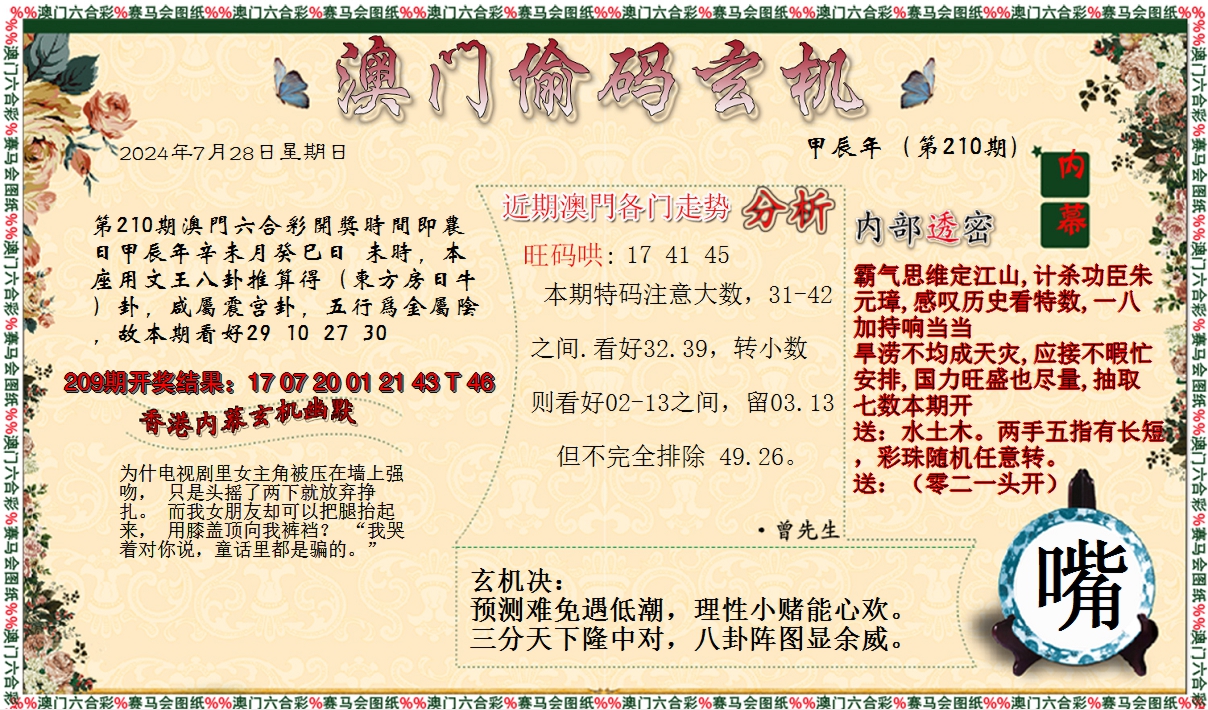 %%澳门六合彩%赛马会图纸%%澳门六合彩%赛马会图纸%%澳门六合彩%赛马会图纸%%澳门六合彩%赛马会图纸%%澳门六合彩%赛马会图纸%%澳门六合彩%赛马会图纸%%
澳门偷码玄机
2024年7月28日星期日
甲辰年 (第210期)
内幕
第210期澳門六合彩開獎時間即農
日甲辰年辛未月癸巳日 未時, 本
座用文王八卦推算得 (東方房日牛
) 卦, 咸屬震宫卦, 五行爲金屬陰
, 故本期看好29 10 27 30
209期开奖结果: 17 07 20 01 21 43 T 46
香港内幕玄机幽默
为什电视剧里女主角被压在墙上强
吻, 只是头摇了两下就放弃挣
扎。 而我女朋友却可以把腿抬起
来, 用膝盖顶向我裤裆? “我哭
着对你说,童话里都是骗的。”
近期澳門各门走势 分析
旺码哄: 17 41 45
本期特码注意大数, 31-42
之间.看好32.39, 转小数
则看好02-13之间, 留03.13
但不完全排除 49.26。
·曾先生
内部透密
霸气思维定江山,计杀功臣朱
元璋,感叹历史看特数,一八
加持响当当
旱涝不均成天灾,应接不暇忙
安排,国力旺盛也尽量,抽取
七数本期开
送: 水土木。两手五指有长短
, 彩珠随机任意转。
送: (零二一头开)
玄机决:
预测难免遇低潮, 理性小赌能心欢。
三分天下隆中对, 八卦阵图显余威。
嘴
%%澳门六合彩%赛马会图纸%%澳门六合彩%赛马会图纸%%澳门六合彩%赛马会图纸%%澳门六合彩%赛马会图纸%%澳门六合彩%赛马会图纸%%澳门六合彩%赛马会图纸%%